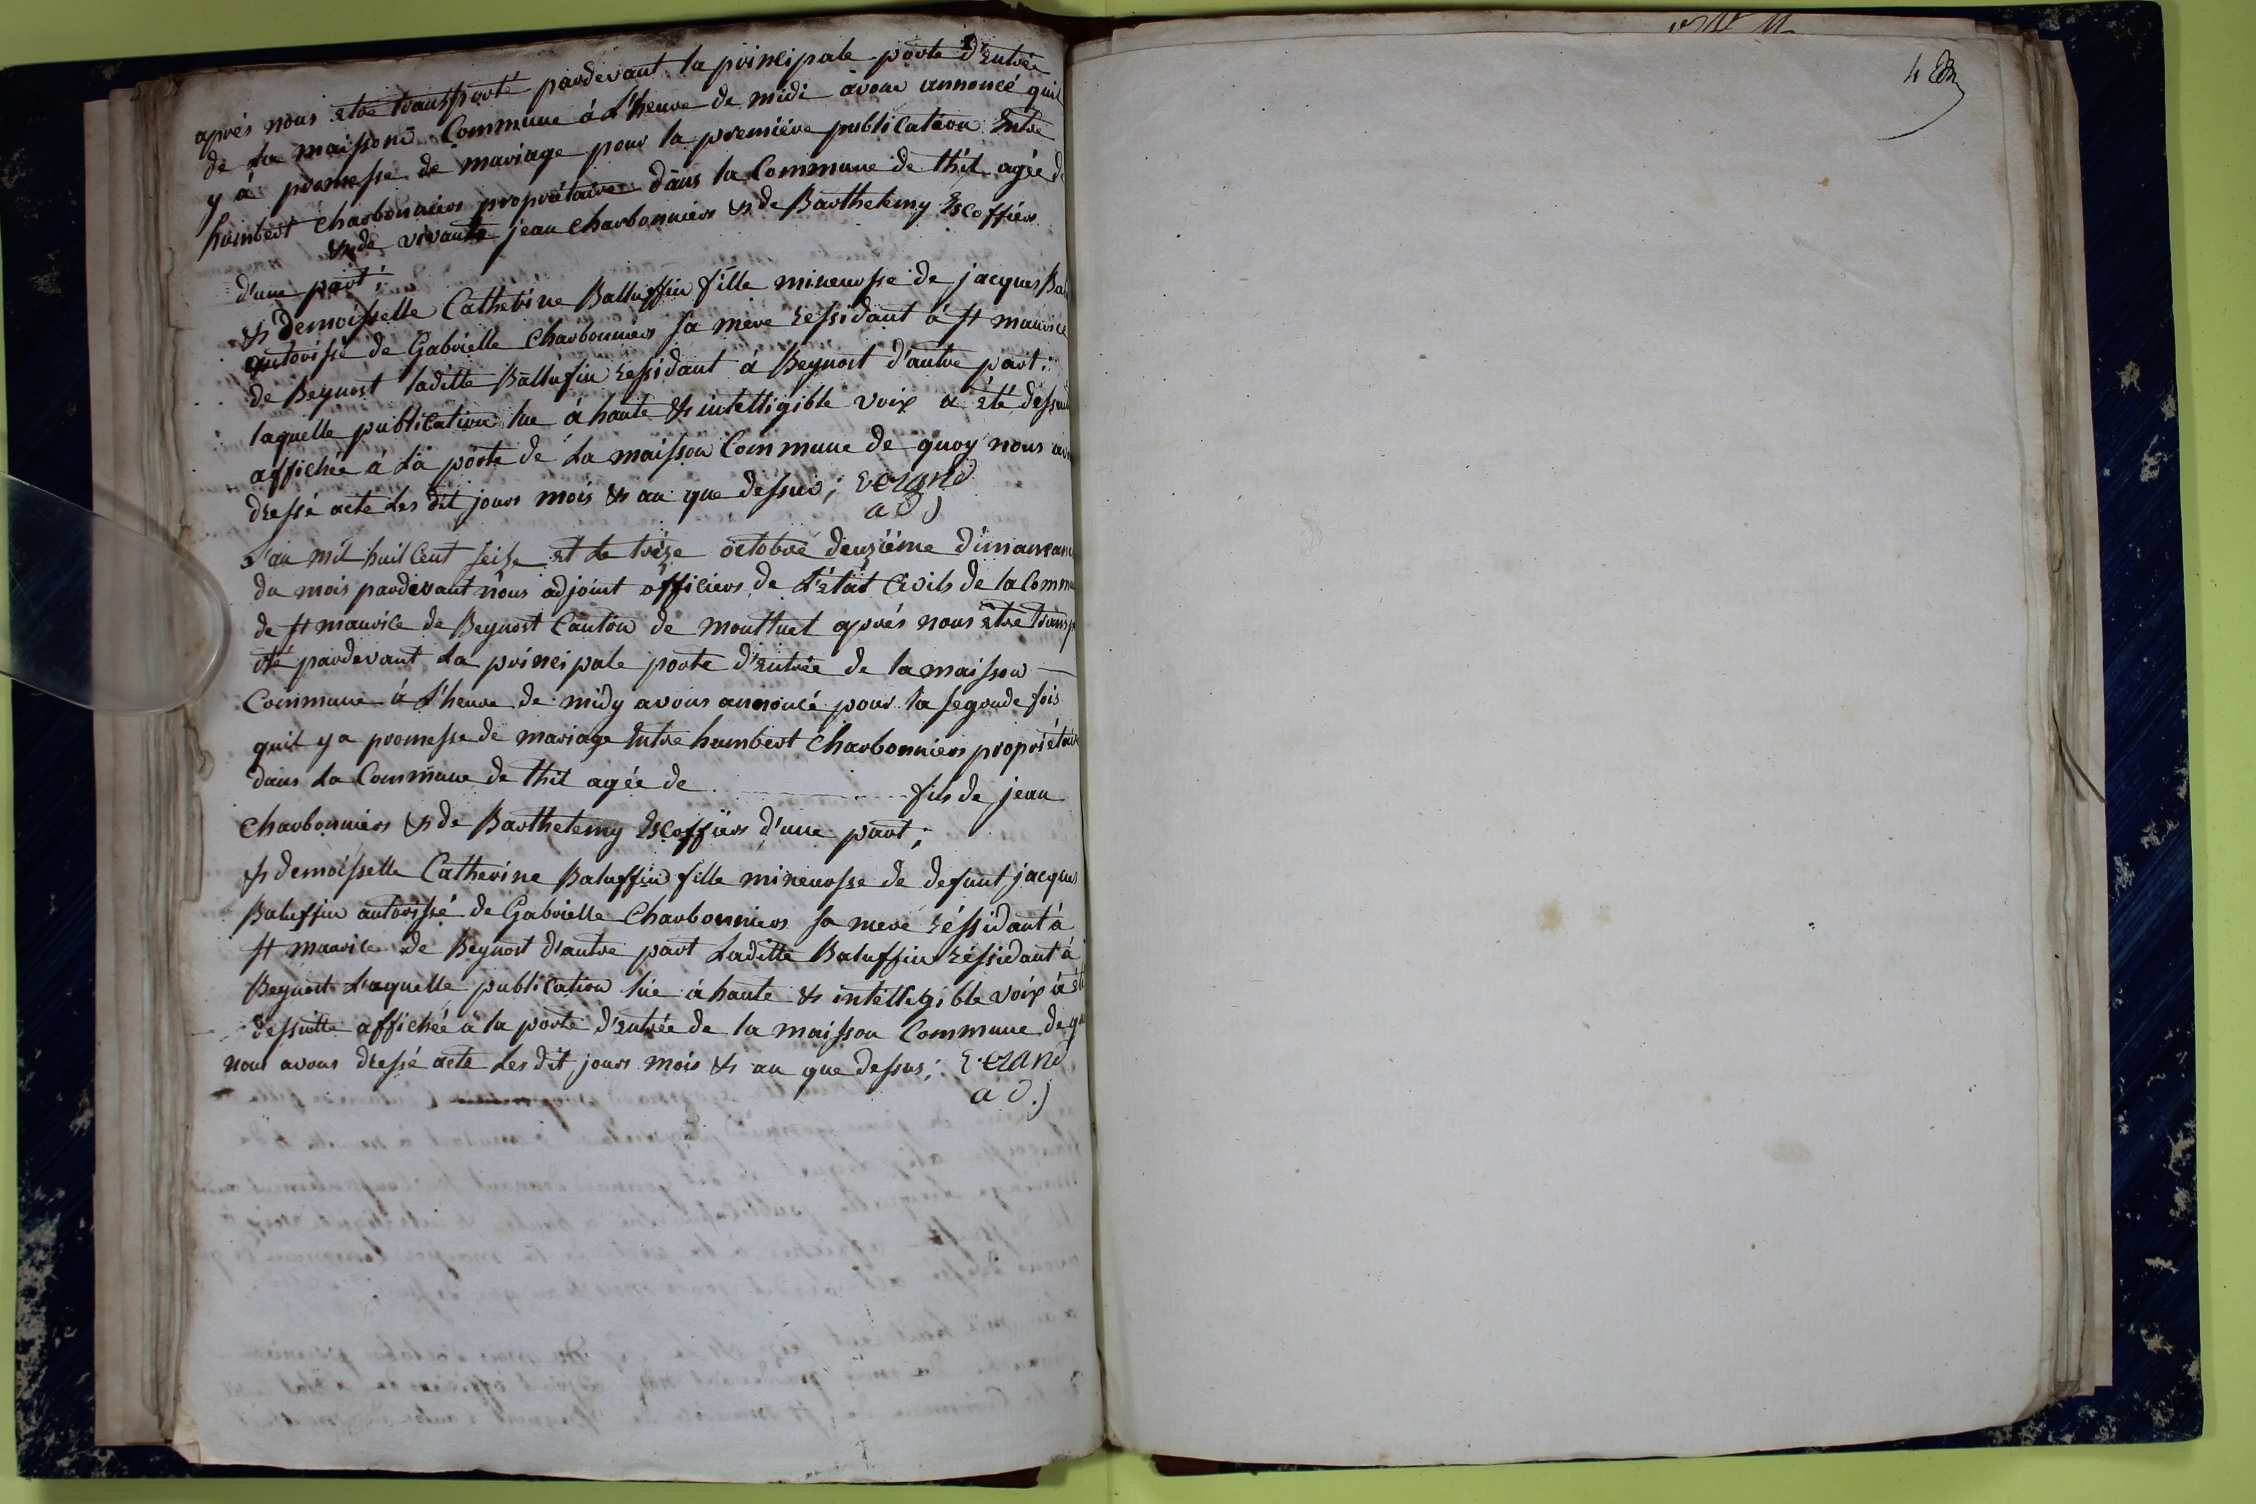 aprés nous etre transporté pardevant la principale porte d'Entrée
de La maisson Commune á L'heure de midi avons annoncé quil
y á promesse de mariage pour la premiére publication Entre
humbert Charbonniers propriétaire dans la Commune de thil agée de
fils de vivante jean charbonniers & de Barthelemy Escoffiers
d'une part;
& demoisselle Catherine Balluffin fille mineurse de jacques Bal
autorissé de Gabrielle Charbonniers sa mere ressidant á st maurice
de Beynost laditte Ballufin ressidant á Beynost d'autre part;
laquelle publication lue á haute & intelligible voix a été dessuitte
affichée á La porte de La maisson Commune de quoy nous av
dressé acte Les dit jours mois & an que dessus; Verand
adj
L'an mil huil Cent seize et Le treize octobre deuziéme dimanan
du mois pardevant nous adjoint officiers de L'état Civils de la Comm
de st maurice de Beynost Canton de montluel aprés nous être transp
oté pardevant La principale porte d'Entrée de la maisson
Commune á L'heure de midy avons annoncé pour la segonde fois
quil y a promesse de mariage Entre humbert Charbonniers propriétaire
dans La Commune de thil agée de ........ fils de jean
Charbonniers & de Barthelemy Escoffiers d'une part;
& demoisselle Catherine Baluffin fille mineursse de defunt jacques
Baluffin autorissé de Gabrielle Charbonniers sa mere réssidant á
st maurice de Beynost d'autre part Laditte Baluffin réssidant á
Beynost L'aquelle publication lue á haute & intellegible voix á eté
dessuitte affichée á la porte d'Entrée de la maisson Commune de qu
nous avons dressé acte Les dit jours mois & an que dessus; Verand
adj
4